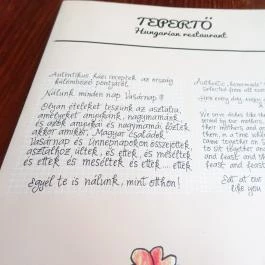 TEPERTŐ
Hungarian restaurant
Autentikus, házi receptek az ország
különböző pontjáról.
Nálunk minden nap Vasárnap!!!
Olyan ételeket teszünk az asztalra,
amelyeket anyáink, nagymamáink,
és azok anyukái és nagymamái főztek
akkor amikor, Magyar családok
Vasárnap és Ünnepnapokon összejöttek,
asztalhoz ültek, és ettek, és meséltek
és ettek és meséltek és ettek .... ettek
Egyél te is nálunk, mint otthon!
Authentic, "homemade"
Selected from all
Here every day,
We serve dishes like
served by our mothers,
their mothers and
them, in a time wh
came together on S
to sit together and
and feast and th
and feast and
Eat at our
like you